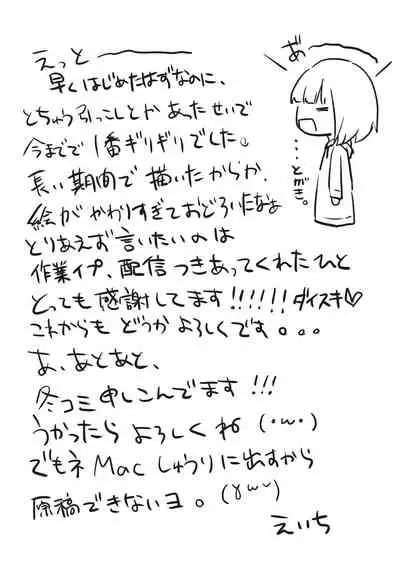 えっと────
早くはじめたはずなのに、
とちゅう引っこしとか あったせいで
今までで 1番ギリギリでした。
長い期間で 描いたからか、
絵が かわりすぎて おどろいたなぁ
とりあえず 言いたいのは
作業イプ、配信 つきあってくれた ひと
とっても 感謝してます!!!!!! ダイスキ♡
これからも どうか よろしくです。。。
あ、あとあと、
冬コミ 申しこんでます!!!
うかったら よろしくね (・ω・)
でもネ Mac しゅうりに 出すから
原稿できないヨ。
えいち
あ
…とがき。